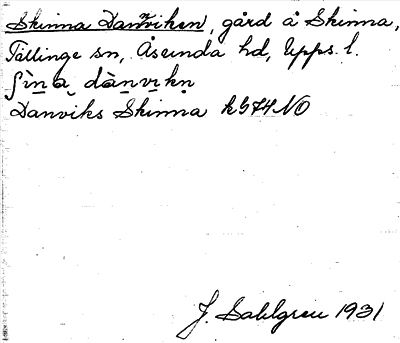 Skinna Danviken, gård å Skinna,
Tillinge sn, Åsunda hd, Upps. l.
ʃìna dànvikn
Danviks Skinna k 574 NO
J. Sahlgren 1931